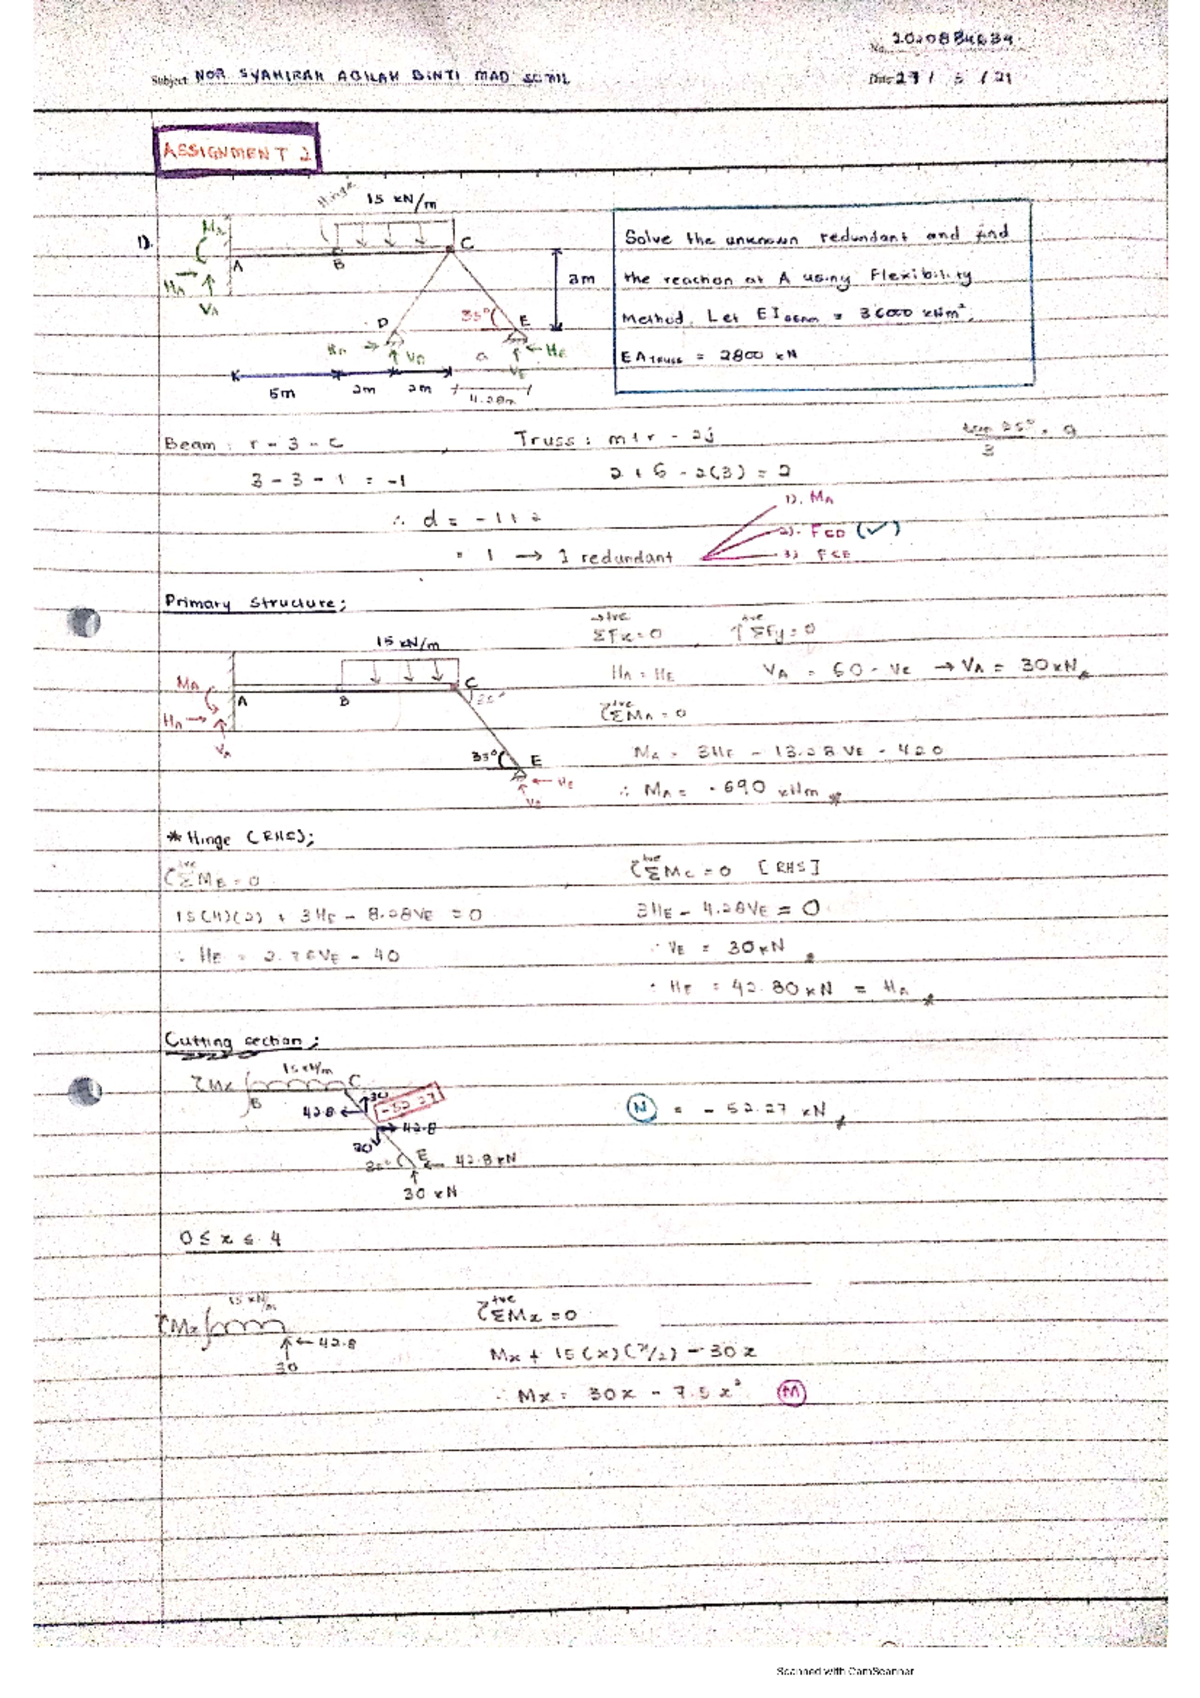 No. 2020884634
Subject NOR SYAHIRAH AQILAH BINTI MAD
Date 27 / 5 / 21
ASSIGNMENT 2
1).
Hinge
15 kN/m
MA
HA
VA
A
B
C
D
E
3m
35°
HD
VD
a
VE
HE
5m
2m
2m
4.28m
Solve the unknown redundant and find
the reaction at A using Flexibility
Method. Let EI BEAM = 36000 kNm²,
EA TRUSS = 2800 kN
Beam : r - 3 - c
3 - 3 - 1 = -1
Truss : m + r - 2j
2 + 6 - 2(3) = 2
∴ d = -1 + 2
= 1 → 1 redundant
1). MA
2). FCD (✓)
3) FCE
Primary Structure;
15 kN/m
MA
HA
VA
A
B
C
35°
35°
E
HE
VE
→+ve
ΣFx = 0
HA = HE
↑+ve ΣFy = 0
VA = 60 - VE → VA = 30 kN
+ve ΣMA = 0
MA = 3HE - 13.28 VE - 420
∴ MA = -690 kNm *
* Hinge (RHS);
+ve ΣMB = 0
15(4)(2) + 3HE - 8.28VE = 0
∴ HE = 2.76VE - 40
+ve ΣMC = 0 [RHS]
3HE - 4.28VE = 0
∴ VE = 30 kN
∴ HE = 42.80 kN = HA *
Cutting section ;
15 kN/m
Mx
B
C
30
42.8
-52.27
42.8
30
35°
E
42.8 kN
30 kN
N = - 52.27 kN
0 ≤ x ≤ 4
15 kN/m
Mx
42.8
30
+ve ΣMx = 0
Mx + 15(x)(x/2) - 30x
∴ Mx = 30x - 7.5x² M
Scanned with CamScanner